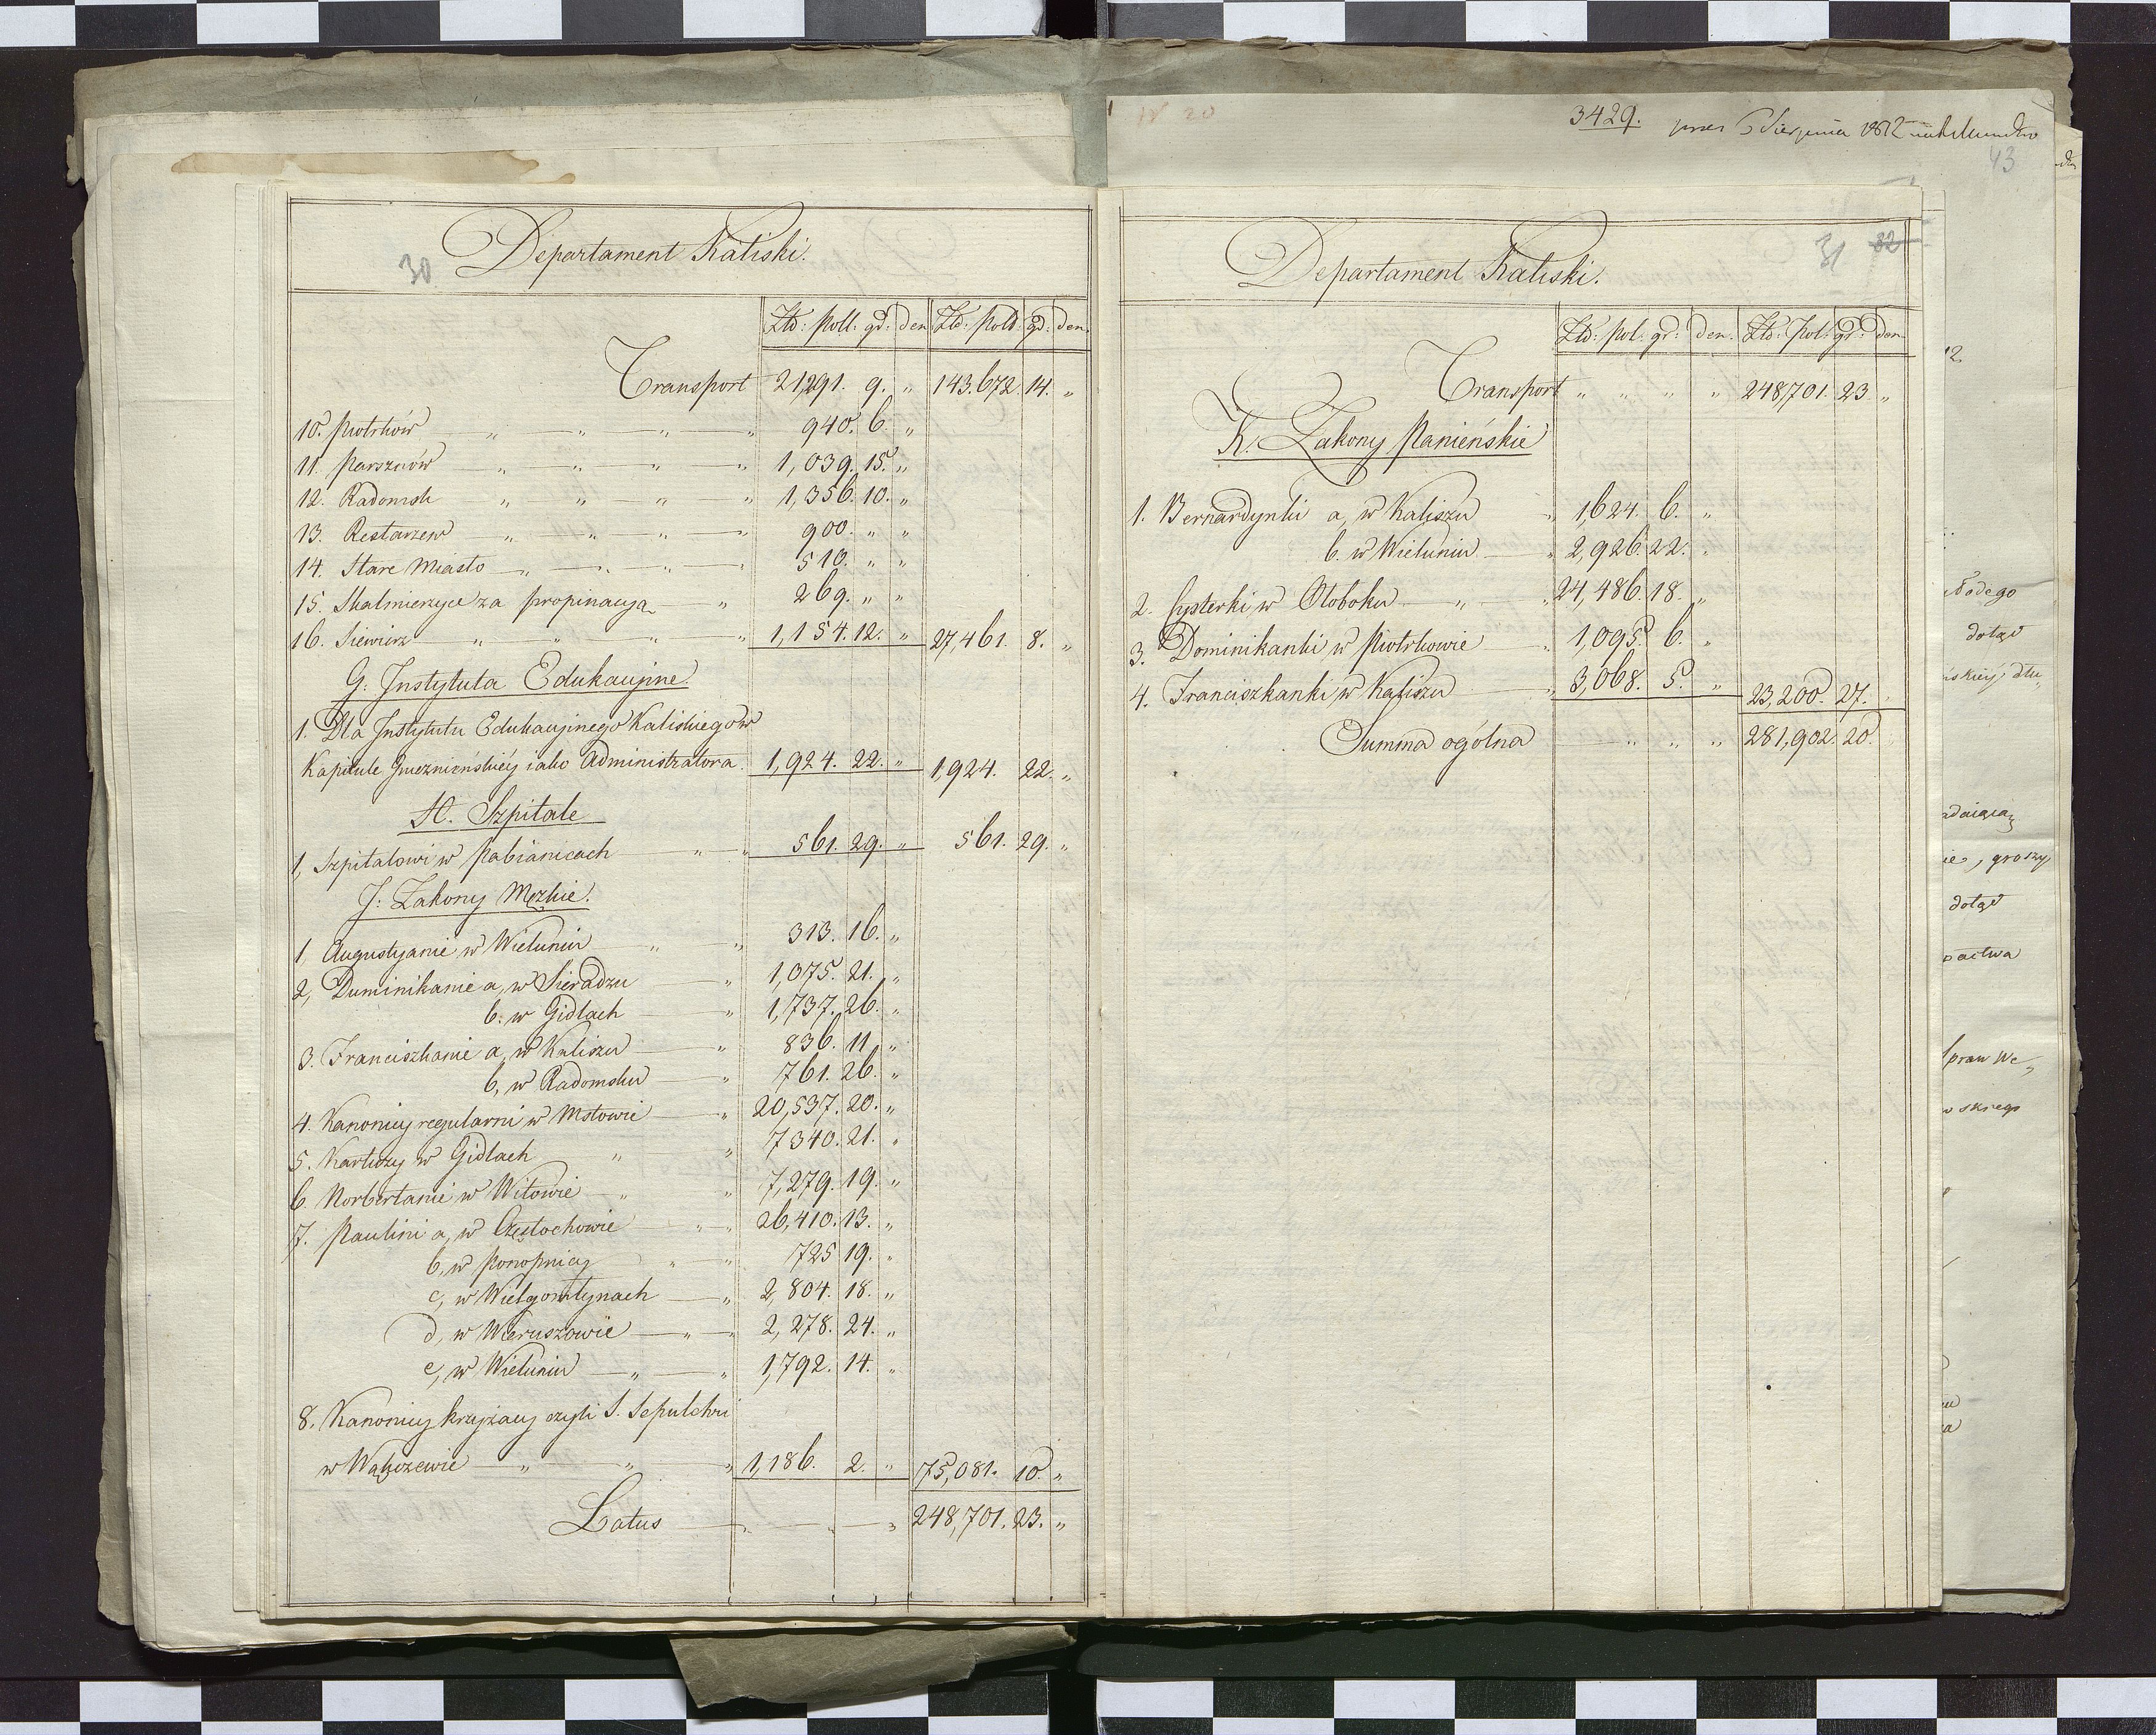 30
Departament Kaliski.
Złd: Poll: gd: den Zld: Polld: gd: den.
Transport 21,291. 9. „ 143.672. 14. „
10. Piotrków „ „ „ „ 940. 6. „
11. Parsznów „ „ „ „ 1,039. 15. „
12. Radomsk „ „ „ „ 1,356. 10. „
13. Restarzew „ „ „ „ 900. „ „
14. Stare Miasto „ „ „ „ 510. „ „
15. Skalmierzyce za propinacyą „ 269. „ „
16. Siewierz „ „ „ „ 1,154. 12. „ 27,461. 8. „
G: Instytuta Edukacyine
1. Dla Instytutu Edukacyinego Kaliskiego w
Kapitule Gnieznieńskiéy iako Administratora. 1,924. 22. „ 1,924. 22. „
H. Szpitale
1, Szpitalowi w Pabianicach „ „ 561. 29. „ 561. 29. „
J: Zakony Męzkie.
1, Augustyanie w Wieluniu „ „ 313. 16. „
2, Duminikanie a, w Sieradzu „ 1,075. 21. „
b. w Gidlach „ 1,737. 26. „
3. Franciszkanie a, w Kaliszu „ 836. 11 „
b, w Radomsku „ 761. 26. „
4. Kanonicy regularni w Mstowie „ 20,537. 20. „
5. Kartuzy w Gidlach „ „ 7340. 21. „
6. Norbertanie w Witowie „ „ 7,279. 19. „
7. Paulini a, w Częstochowie „ „ 26,410. 13. „
b, w Konopnicy „ „ 725 19. „
c, w Wielgomłynach „ 2,804. 18. „
d, w Wieruszowie „ „ 2,278. 24. „
e, w Wieluniu „ „ 1,792. 14. „
8. Kanonicy krzyżacy czyli S. Sepulchri
w Wąglczewie „ „ „ 1,186. 2. „ 75,081. 10. „
Latus „ „ „ 248,701. 23. „
3429.
43
31 32
Departament Kaliski.
Złd: pol: gr: den. Złd: Pol: gr: den.
Transport „ „ „ „ 248,701. 23 „
K. Zakony Panieńskie
1. Bernardynki a, w Kaliszu „ 1,624. 6. „
b. w Wieluniu „ 2,926. 22. „
2. Cysterki w Ołoboku „ „ 24,486. 18. „
3. Dominikanki w Piotrkowie „ 1,095. 6. „
4. Franciszkanki w Kaliszu „ 3,068. 5. „ 23,200. 27.
Summa ogólna „ „ „ 281,902. 20.
dotąd
groszy
dotąd